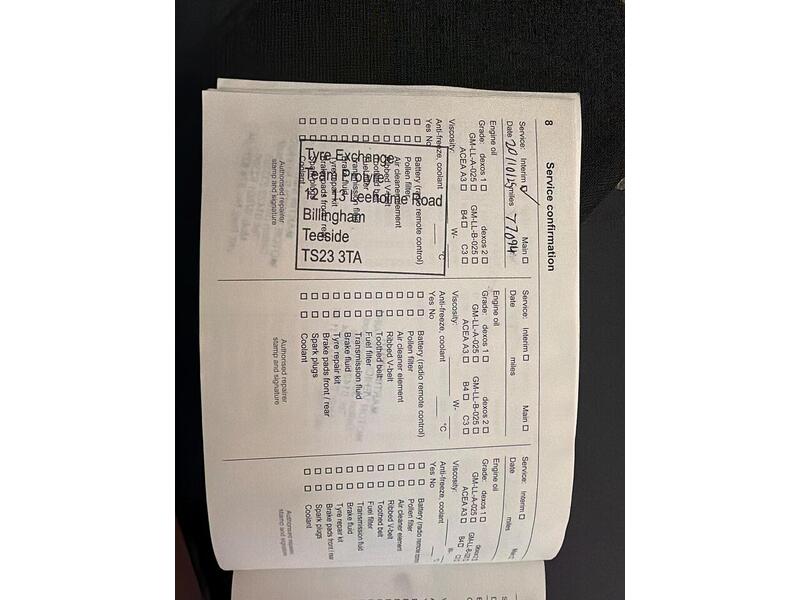 8 Service confirmation
Service: Interim ☑ Main ☐
Date 20/10/15 miles 77094
Engine oil
Grade: dexos 1 ☐ dexos 2 ☐
GM-LL-A-025 ☐ GM-LL-B-025 ☐
ACEA A3 ☐ B4 ☐ C3 ☐
Viscosity: W-
Anti-freeze, coolant °C
Yes No
☐ ☐ Battery (radio remote control)
☐ ☐ Pollen filter
☐ ☐ Air cleaner element
☐ ☐ Ribbed V-belt
☐ ☐ Toothed belt
☐ ☐ Fuel filter
☐ ☐ Transmission fluid
☐ ☐ Brake fluid
☐ ☐ Tyre repair kit
☐ ☐ Brake pads front / rear
☐ ☐ Spark plugs
☐ ☐ Coolant
Authorised repairer
stamp and signature
Tyre Exchange
Team Protyre
Leeholme Road
Billingham
Teeside
TS23 3TA
Service: Interim ☐ Main ☐
Date miles
Engine oil
Grade: dexos 1 ☐ dexos 2 ☐
GM-LL-A-025 ☐ GM-LL-B-025 ☐
ACEA A3 ☐ B4 ☐ C3 ☐
Viscosity: W-
Anti-freeze, coolant °C
Yes No
☐ ☐ Battery (radio remote control)
☐ ☐ Pollen filter
☐ ☐ Air cleaner element
☐ ☐ Ribbed V-belt
☐ ☐ Toothed belt
☐ ☐ Fuel filter
☐ ☐ Transmission fluid
☐ ☐ Brake fluid
☐ ☐ Tyre repair kit
☐ ☐ Brake pads front / rear
☐ ☐ Spark plugs
☐ ☐ Coolant
Authorised repairer
stamp and signature
Service: Interim ☐
Date miles
Engine oil
Grade: dexos 1 ☐
GM-LL-A-025 ☐
ACEA A3 ☐ B4 ☐
Viscosity:
Anti-freeze, coolant
Yes No
☐ ☐ Battery (radio remote
☐ ☐ Pollen filter
☐ ☐ Air cleaner element
☐ ☐ Ribbed V-belt
☐ ☐ Toothed belt
☐ ☐ Fuel filter
☐ ☐ Transmission fluid
☐ ☐ Brake fluid
☐ ☐ Tyre repair kit
☐ ☐ Brake pads front / rear
☐ ☐ Spark plugs
☐ ☐ Coolant
Authorised
stamp and signature